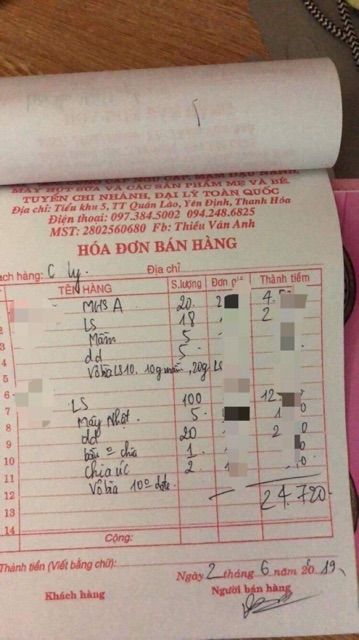 CUNG CẤP NGŨ CỐC, MẦM ĐẬU NÀNH,
MÁY HÚT SỮA VÀ CÁC SẢN PHẨM MẸ VÀ BÉ.
TUYỂN CHI NHÁNH, ĐẠI LÝ TOÀN QUỐC
Địa chỉ: Tiểu khu 5, TT Quán Lào, Yên Định, Thanh Hóa
Điện thoại: 097.384.5002 094.248.6825
MST: 2802560680 Fb: Thiều Vân Anh
HÓA ĐƠN BÁN HÀNG
ách hàng: C Ly. Địa chỉ
TÊN HÀNG S.lượng Đơn giá Thành tiềm
MHB A 20
2 LS 18 2
3 Mầm 5
4 dd 5
5 Vỏ bìa LS 10. 10g mầm, 20g LS
6
7 LS 100 12
8 Máy Nhật. 5
9 dd 20 2
10 bầu chia 1
11 Chia úc 2
12 Vỏ bìa 10
13 24.720
14
Cộng:
Thành tiền (Viết bằng chữ):
Ngày 2 tháng 6 năm 2019
Khách hàng Người bán hàng